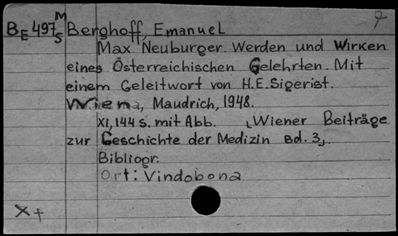 BE 497 MS Berghoff, Emanuel
Max Neuburger. Werden und Wirken
eines Österreichischen Gelehrten. Mit
einem Geleitwort von H.E. Sigerist.
Wiena, Maudrich, 1948.
XI, 144 S. mit Abb. „Wiener Beiträge
zur Geschichte der Medizin Bd. 3„.
Bibliogr.
Ort: Vindobona